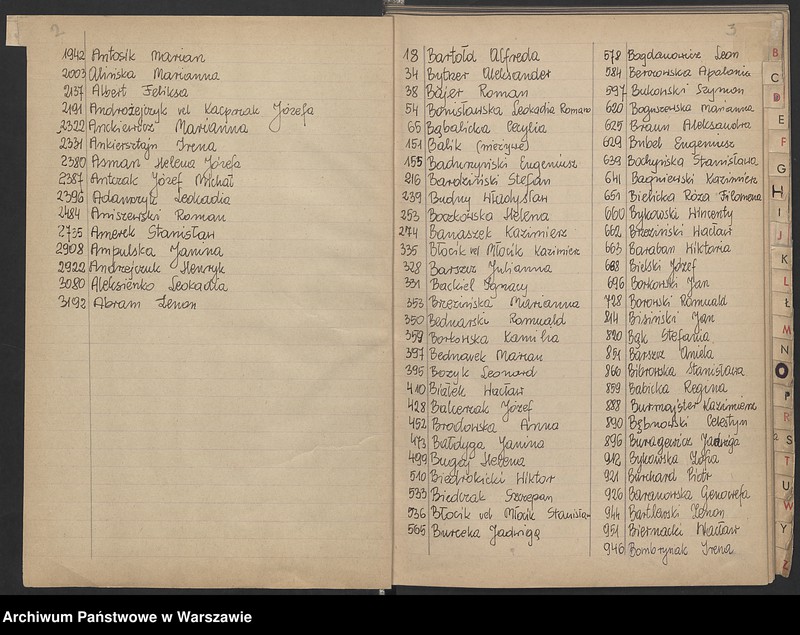 2
1942 Antosik Marian
2003 Alińska Marianna
2137 Albert Feliksa
2191 Androżejczyk vel Kacprzak Józefa
2322 Anckiewicz Marianna
2331 Ankiersztajn Irena
2380 Asman Helena Józefa
2387 Antczak Józef Michał
2396 Adamczyk Leokadia
2484 Aniszewski Roman
2735 Amerek Stanisław
2908 Ampulska Janina
2922 Andrzejczuk Henryk
3080 Aleksienko Leokadia
3192 Abram Zenon
3
18 Bartold Alfreda
34 Bytner Aleksander
38 Bajer Roman
54 Bonisławska Leokadia Romana
65 Bąbalicka Cecylia
151 Balik (nieżywe)
155 Badurzyński Eugeniusz
216 Bardziński Stefan
239 Budny Władysław
253 Boczkowska Helena
274 Banaszek Kazimierz
335 Błocik vel Młocik Kazimierz
328 Barszcz Julianna
331 Backiel Ignacy
353 Brzezińska Marianna
350 Bednarski Romuald
359 Borkowska Kamila
397 Bednarek Marian
395 Bozyk Leonard
410 Białek Wacław
428 Balcerzak Józef
452 Brodowska Anna
473 Bałdyga Janina
499 Bugaj Helena
510 Biedrzycki Wiktor
533 Biedrzak Szczepan
536 Błocik vel Młocik Stanisław
565 Burecka Jadwiga
578 Bogdanowicz Leon
584 Berozowska Apolonia
597 Bukowski Szymon
620 Boguszewska Marianna
625 Braun Aleksandra
629 Bubel Eugeniusz
639 Bochyńska Stanisława
641 Bagniewski Kazimierz
651 Bielicka Róża Filomena
660 Bykowski Wincenty
662 Brzeziński Wacław
663 Baraban Wiktoria
668 Bielski Józef
696 Borkowski Jan
728 Borowski Romuald
814 Bisiński Jan
820 Bąk Stefania
851 Barszcz Aniela
866 Bibrowska Stanisława
859 Babicka Regina
888 Burmajster Kazimierz
890 Bąbnowski Celestyn
896 Buragiewicz Jadwiga
912 Bykowska Zofia
921 Burchard Piotr
926 Baranowska Genowefa
944 Bartlewski Zenon
951 Biernacki Wacław
946 Bombrynak Irena
B
C
D
E
F
G
H
I
J
K
L
Ł
M
N
O
P
R
S
T
U
W
Y
Z
Archiwum Państwowe w Warszawie